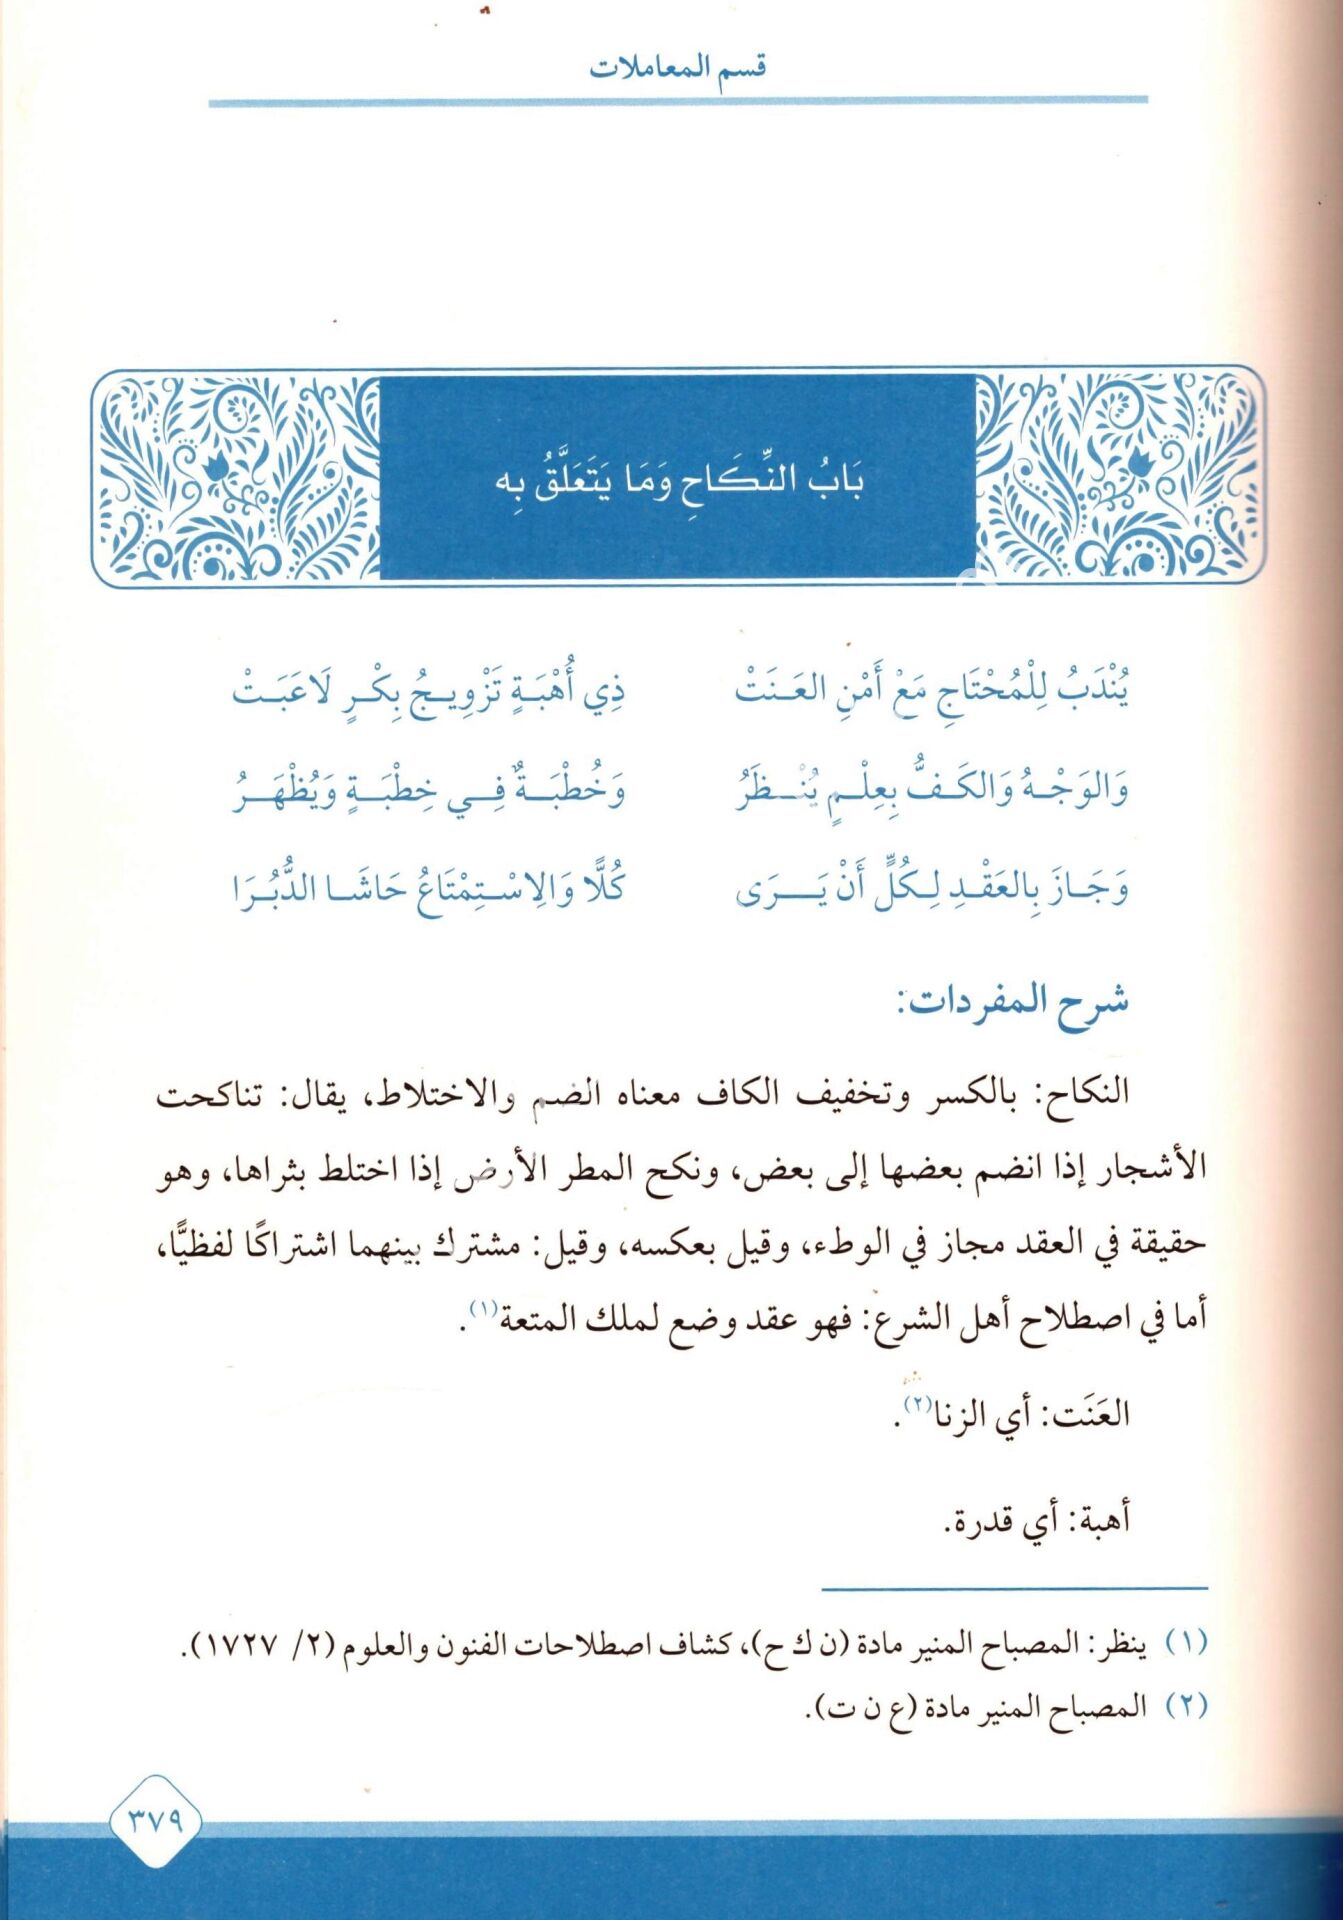 قسم المعاملات
بَابُ النِّكَاحِ وَمَا يَتَعَلَّقُ بِه
يُنْدَبُ لِلْمُحْتَاجِ مَعْ أَمْنِ العَـنَتْ ذِي أُهْبَةٍ تَزْوِيـجُ بِكْـرٍ لَاعَبَـتْ
وَالوَجْـهُ وَالكَـفُّ بِعِلْـمٍ يُنْـظَرُ وَخُطْبَـةٌ فِـي خِطْبَـةٍ وَيُظْهَـرُ
وَجَـازَ بِالعَقْـدِ لِـكُلٍّ أَنْ يَـــرَى كُلًّا وَالِاسْـتِمْتَاعُ حَاشَـا الدُّبُـرَا
شرح المفردات:
النكاح: بالكسر وتخفيف الكاف معناه الضم والاختلاط، يقال: تناكحت
الأشجار إذا انضم بعضها إلى بعض، ونكح المطر الأرض إذا اختلط بثراها، وهو
حقيقة في العقد مجاز في الوطء، وقيل بعكسه، وقيل: مشترك بينهما اشتراكًا لفظيًّا،
أما في اصطلاح أهل الشرع: فهو عقد وضع لملك المتعة(١).
العَنَت: أي الزنا(٢).
أهبة: أي قدرة.
(١) ينظر: المصباح المنير مادة (ن ك ح)، كشاف اصطلاحات الفنون والعلوم (٢/ ١٧٢٧).
(٢) المصباح المنير مادة (ع ن ت).
٣٧٩